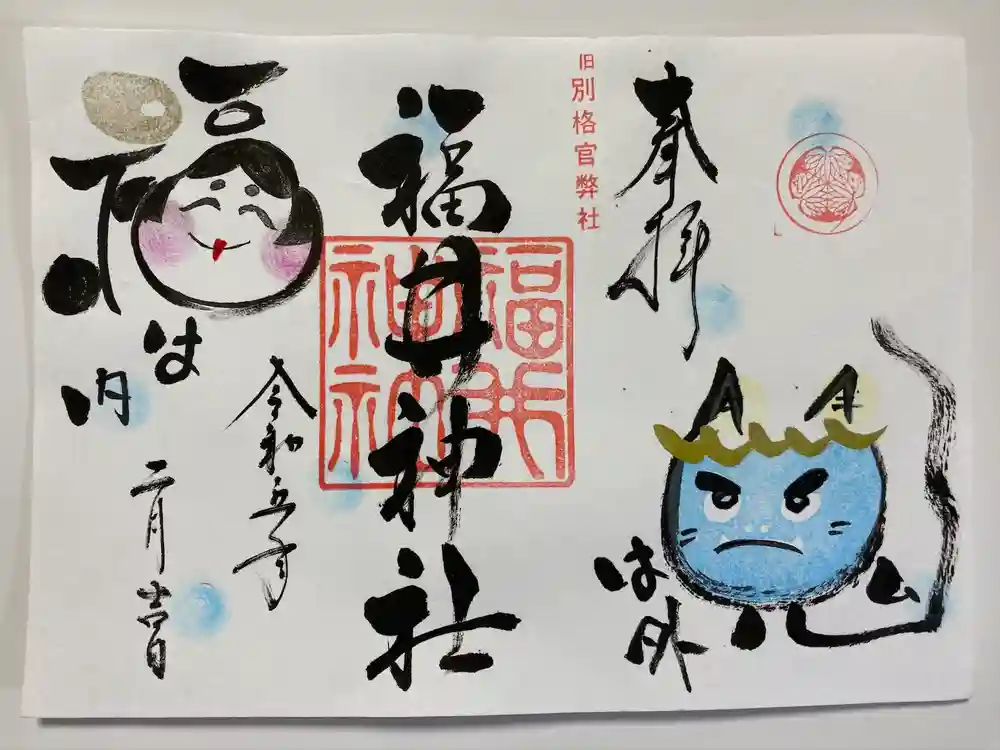 奉拝
旧別格官弊社
福井神社
福井
神社
鬼は外
令和五年
二月吉日
福は内